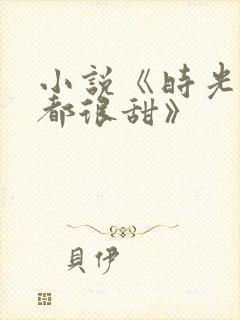 小説《時光
都很甜》
貝伊